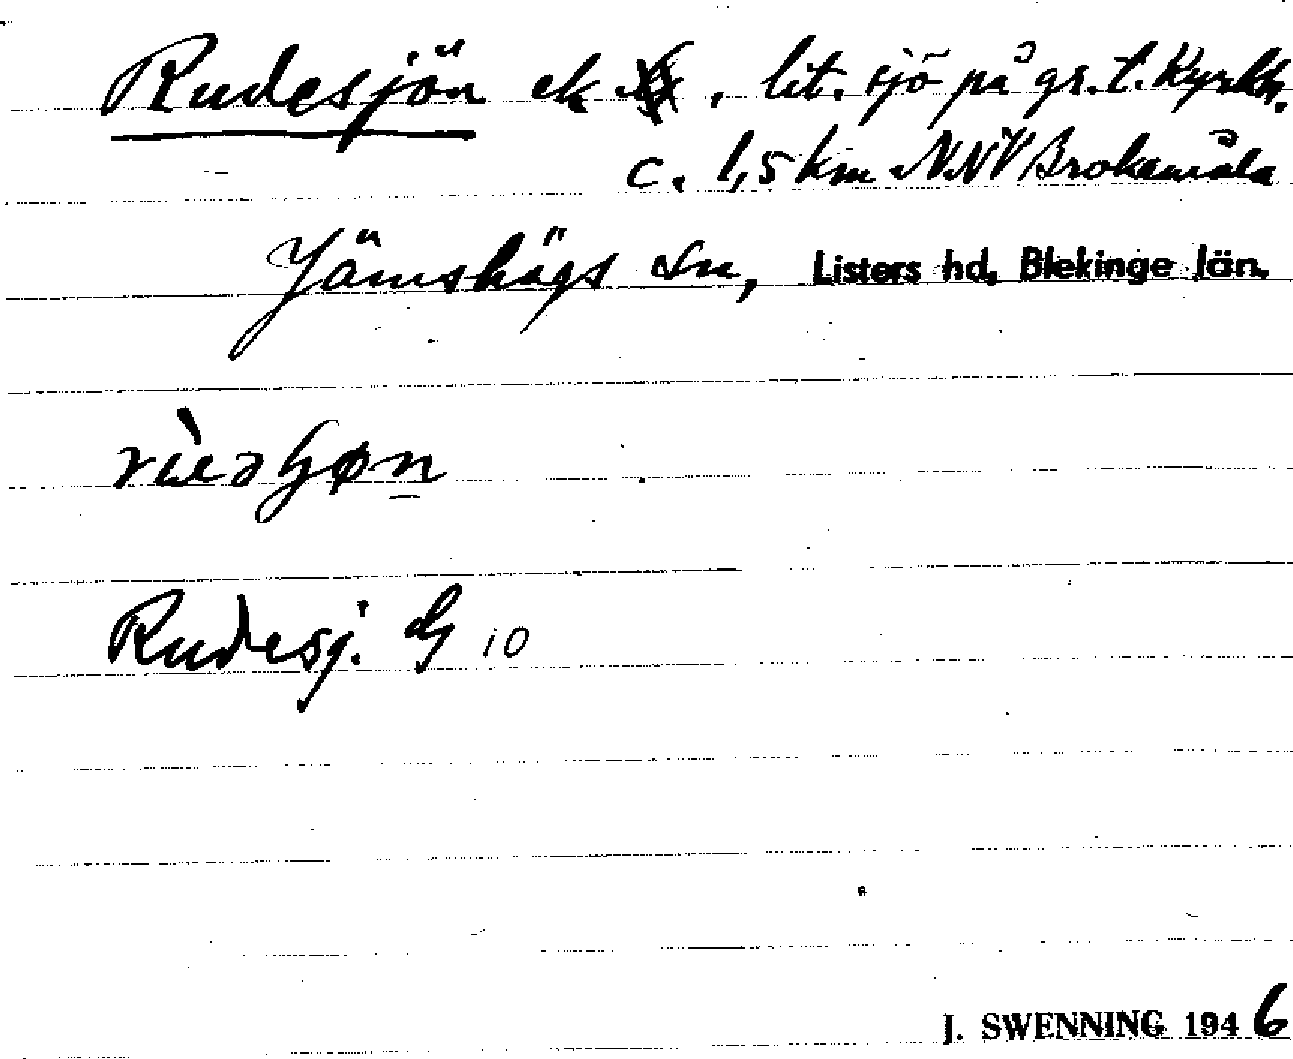 Rudesjön ek , lit. sjö på gr. t. Kyrkh.
c. 1,5 km NNV Brokamåla
Jämshögs sn, Listers hd, Blekinge län.
Rudesj. G 10
J. SWENNING 1946